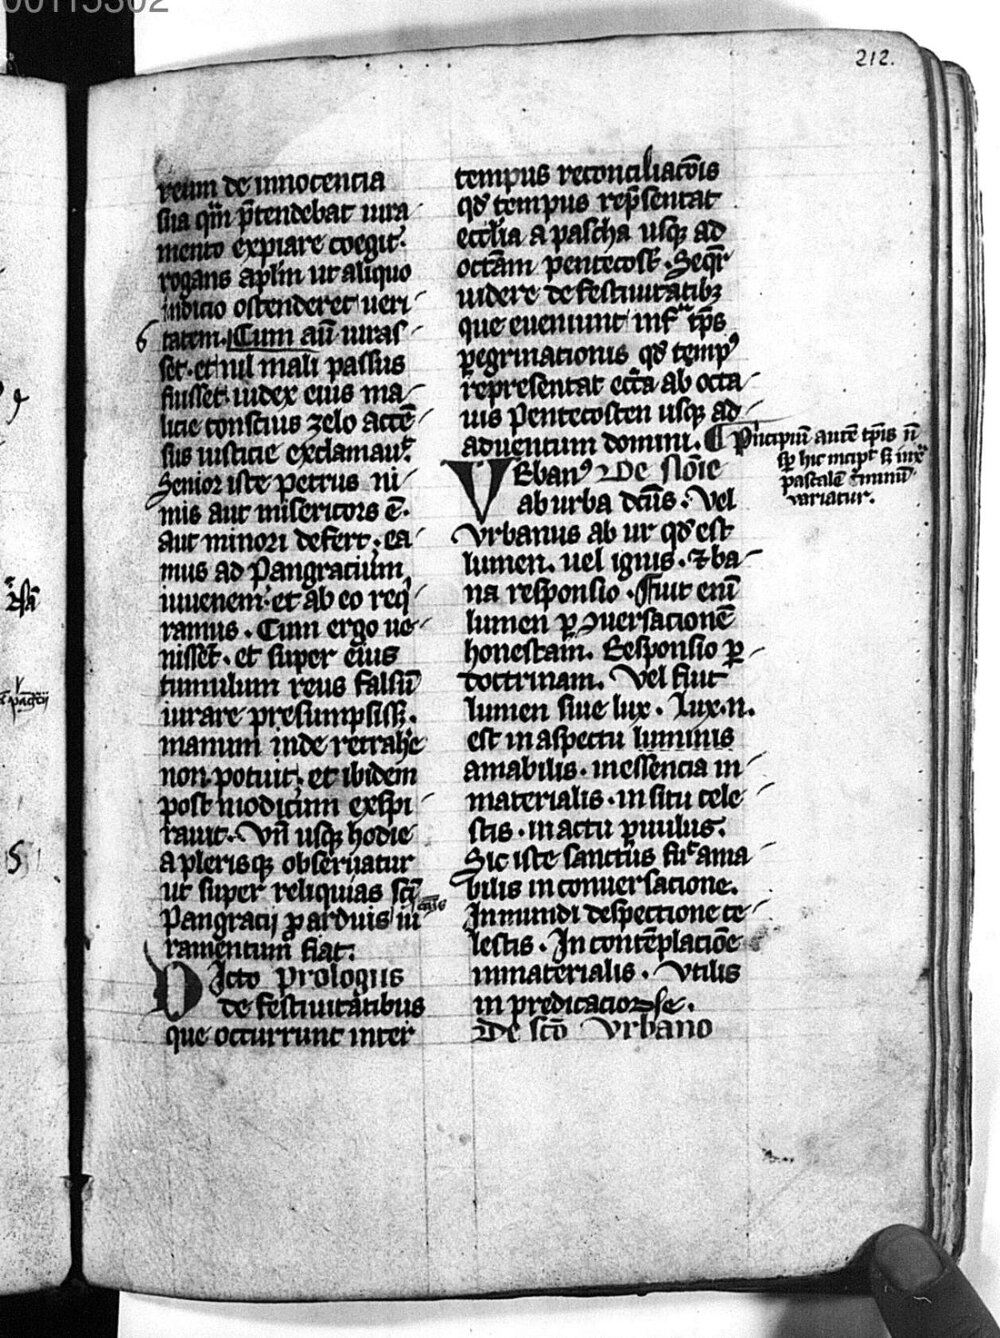 212.
reum de innocencia
sua qm̄ p̄tendebat iura
mento expiare coegit.
rogans apl̄m ut aliquo
indicio ostenderet ueri
6 tatem. Cum aū iuras
set. et nil mali passus
fuisset. iudex eius ma
licie conscius zelo accē
sus iusticie exclamauit.
Senior iste petrus ni
mis aut misericors ē.
aut minori defert. ea
mus ad Pangracium
iuuenem. et ab eo req̄
ramus. Cum ergo ue
nisset. et super eius
tumulum reus falsū
iurare presumpsiss;.
manum inde retrah̄e
non potuit. et ibidem
post modicum exspi
rauit. Vn̄ usq; hodie
a plerisq; obseruatur
ut super reliquias sc̄i
Pangracij ꝑ arduis iu
ramentum fiat.
Dicto prologus
de festiuitatibus
que occurrunt inter
tempus reconciliac̄ois
qd̓ tempus rep̄sentat
ecc̄lia a pascha usq; ad
octam̄ pentecost̄. Seqr̄
uidere de festiuitatib;
que eueniunt infᵃ tp̄s
ꝑegrinationis qd̓ tempꝰ
representat ecc̄a ab octa
uis Pentecosten usq; ad
aduentum domini.
¶ Pⁱncipiū autē tp̄is n̄
sꝑ hic incipt̄
pascalē t̄minū
variatur.
VRbanꝰ De no̅ie
ab urba dc̄us. Vel
Vrbanus ab ur qd̓ est
lumen. uel ignis. ⁊ ba
na responsio. Fuit enī
lumen ꝑ ꝯuersacionē
honestam. Responsio ꝑ
doctrinam. Vel fuit
lumen siue lux. Lux .n.
est in aspectu luminis
amabilis. in essencia in
materialis. in situ cele
stis. in actu puulus.
Sic iste sanctus fuit ama
bilis in conuersacione.
In mundi despectione ce
lestis. In contēplacioē
inmaterialis. Vtilis
in predicacione.
De sc̄o Vrbano